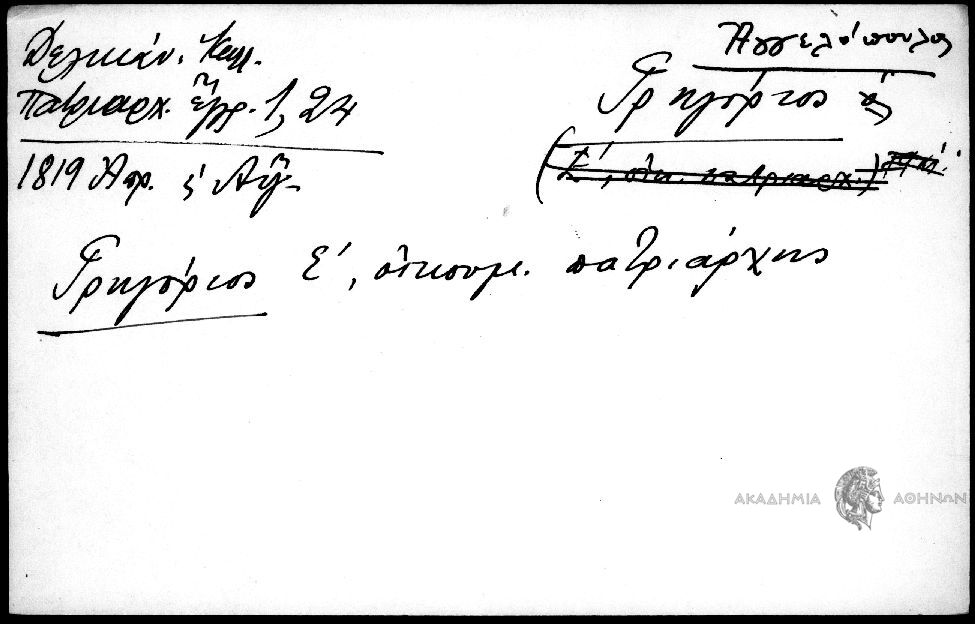 Δελικάν. Καλ.
Πατριαρχ. ἔγγρ. 1, 24
1819 Ἀπρ.
Ἀγγελόπουλος
Γρηγόριος
(Ε΄, οἰκ. πατριαρχ.)
Γρηγόριος Ε΄, οἰκουμ. πατριάρχης
ΑΚΑΔΗΜΙΑ ΑΘΗΝΩΝ